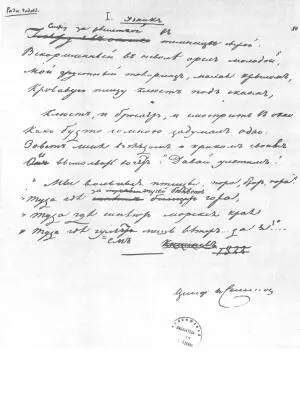 I. Узникъ
Сижу за решеткой въ
темницѣ сырой.
Вскормленный въ неволѣ орелъ молодой,
Мой грустный товарищъ, махая крыломъ,
Кровавую пищу клюетъ подъ окномъ,
Клюетъ, и бросаетъ, и смотритъ въ окно
Какъ будто со мною задумалъ одно.
Зоветъ меня взглядомъ и крикомъ своимъ
И вымолвить хочетъ: "Давай улетимъ!
"Мы вольныя птицы; пора, братъ, пора!
за тучей бѣлѣетъ
"Туда гдѣ гора,
"Туда гдѣ синѣютъ морскіе края
"Туда гдѣ гуляемъ лишь вѣтеръ... да я!..."
1822